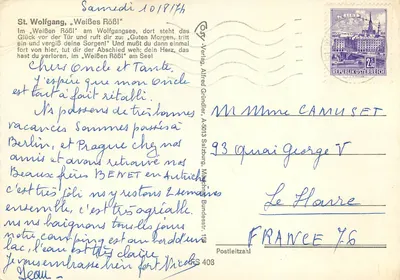 Samedi 10/8/74
St. Wolfgang, „Weißes Rößl"
Im „Weißen Rößl" am Wolfgangsee, dort steht das
Glück vor der Tür und ruft dir zu: „Guten Morgen, tritt
ein und vergiß deine Sorgen!" Und mußt du dann einmal
fort von hier, tut dir der Abschied weh; dein Herz, das
hast du verloren, im „Weißen Rößl" am See!
Cher Oncle et Tante,
J'espère que mon Oncle
est tout à fait rétabli.
Nous passons de très bonnes
vacances Sommes passés à
Berlin, et Prague chez nos
amis et avons retrouvé nos
Beaux frères BENET en Autriche
c'est très joli nous y restons 2 semaines
ensemble, c'est très agréable.
nous nous baignons tous les jours
notre camping est au bord du
lac, l'eau est très claire
je vous embrasse bien fort Nicole
Jean
Verlag Alfred Gründler, A-5013 Salzburg,
Bundesstr.
REPUBLIK ÖSTERREICH
M Mme CAMUSET
93 Quai George V
Le Havre
FRANCE 76
Postleitzahl
S 403